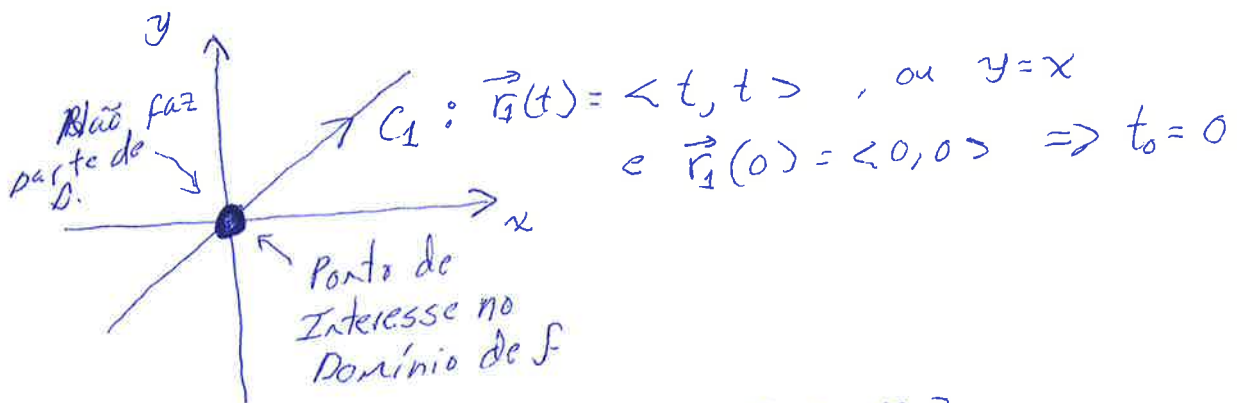 y
Não faz
parte de
D.
C₁ : r⃗₁(t) = < t, t > , ou y = x
e r⃗₁(0) = < 0, 0 > => t₀ = 0
x
Ponto de
Interesse no
Domínio de f